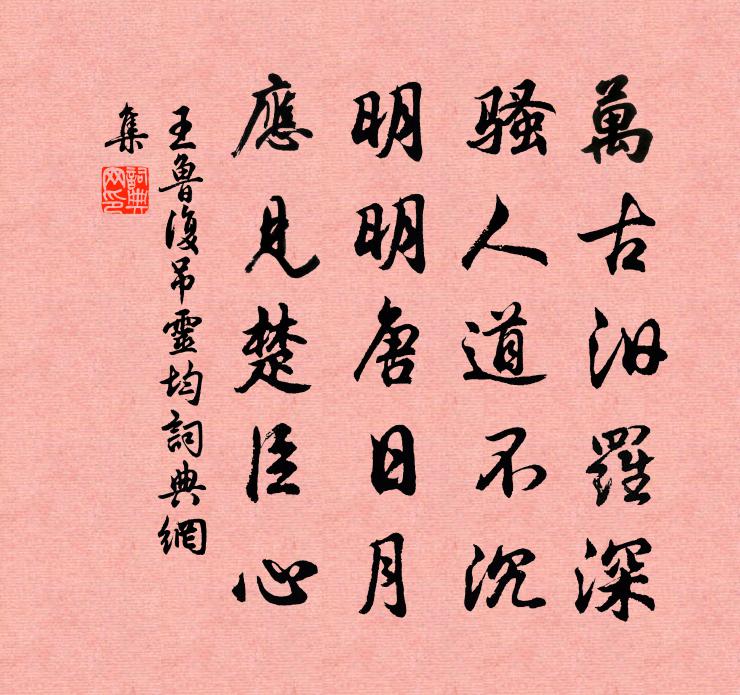 萬古汨羅深
騷人道不沉
明明唐日月
應見楚臣心
王魯復吊靈均詞典網
集
詞典
网印